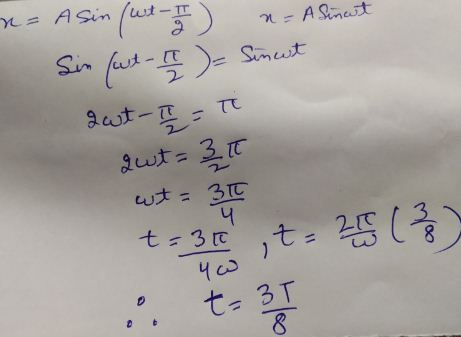 x = A sin (ωt - π/2) x = A sin ωt
Sin (ωt - π/2) = Sin ωt
2ωt - π/2 = π
2ωt = 3/2 π
ωt = 3π/4
t = 3π/4ω , t = 2π/ω (3/8)
∴ t = 3T/8